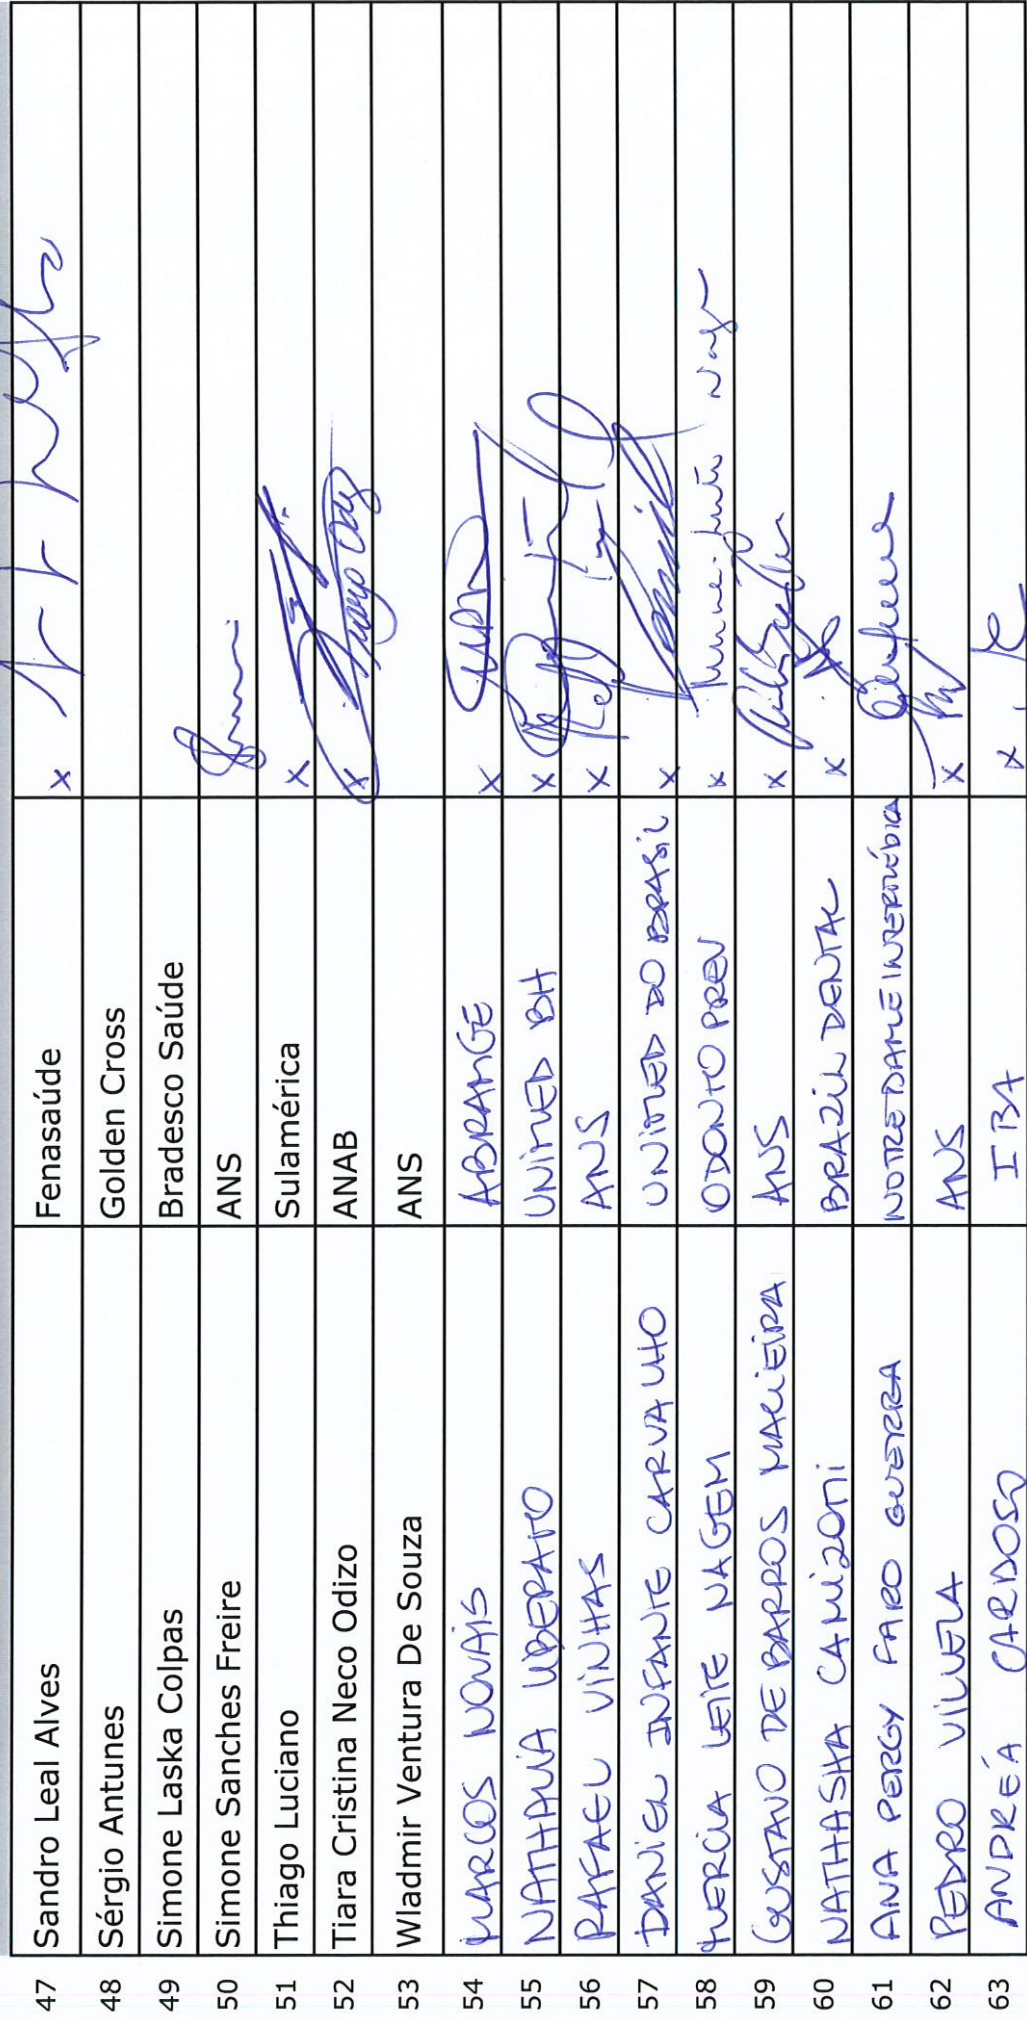 47 Sandro Leal Alves Fenasaúde x
48 Sérgio Antunes Golden Cross
49 Simone Laska Colpas Bradesco Saúde
50 Simone Sanches Freire ANS
51 Thiago Luciano Sulamérica x
52 Tiara Cristina Neco Odizo ANAB x
53 Wladmir Ventura De Souza ANS
54 MARCOS NOVAIS ABRAMGE x
55 NATHALIA LIBERATO UNIMED BH x
56 RAFAEL VINHAS ANS x
57 DANIEL INFANTE CARVALHO UNIMED DO BRASIL x
58 MERCIA LEITE NAGEM ODONTO PREV x
59 GUSTAVO DE BARROS MACIEIRA ANS x
60 NATHASHA CAMIZONI BRAZIL DENTAL x
61 ANA PERGY FARO GUERRA NOTREDAME INTERMÉDICA
62 PEDRO VILLELA ANS x
63 ANDREA CARDOSO IBA x